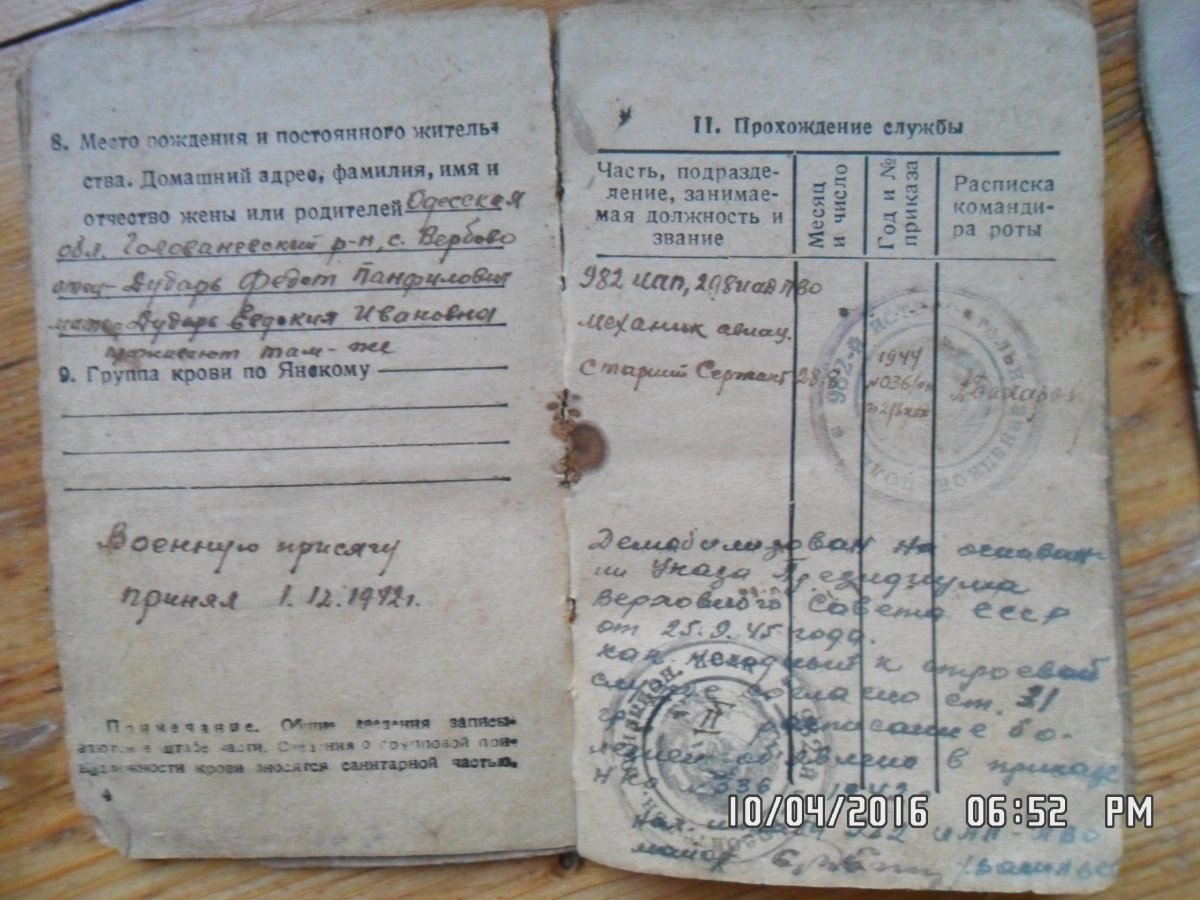 8. Место рождения и постоянного житель-
ства. Домашний адрес, фамилия, имя и
отчество жены или родителей Одесская
обл. Голованевский р-н, с. Вербово
отец- Дударь Федот Панфилович
мать- Дударь Евдокия Ивановна
проживают там-же
9. Группа крови по Янскому
Военную присягу
принял 1.12.1942г.
Примечание. Общие сведения записы-
ваются в штабе части. Сведения о групповой при-
надлежности крови вносятся санитарной частью.
4
II. Прохождение службы
Часть, подразде-
ление, занимае-
мая должность и
звание
Месяц
и число
Год и №
приказа
Расписка
команди-
ра роты
982 иап, 298 иад ПВО
механик авиац.
Старший Сержант 28
1944
№036
982-й
Демобилизован на основан-
ии Указа Президиума
Верховного Совета СССР
от 25.9.45 года.
как негодный к строевой
службе согласно ст. 31
расписание бо-
лезней объявлено в приказе
НКО №336 1942
982 ИАП-ПВО
майор
10/04/2016 06:52 PM